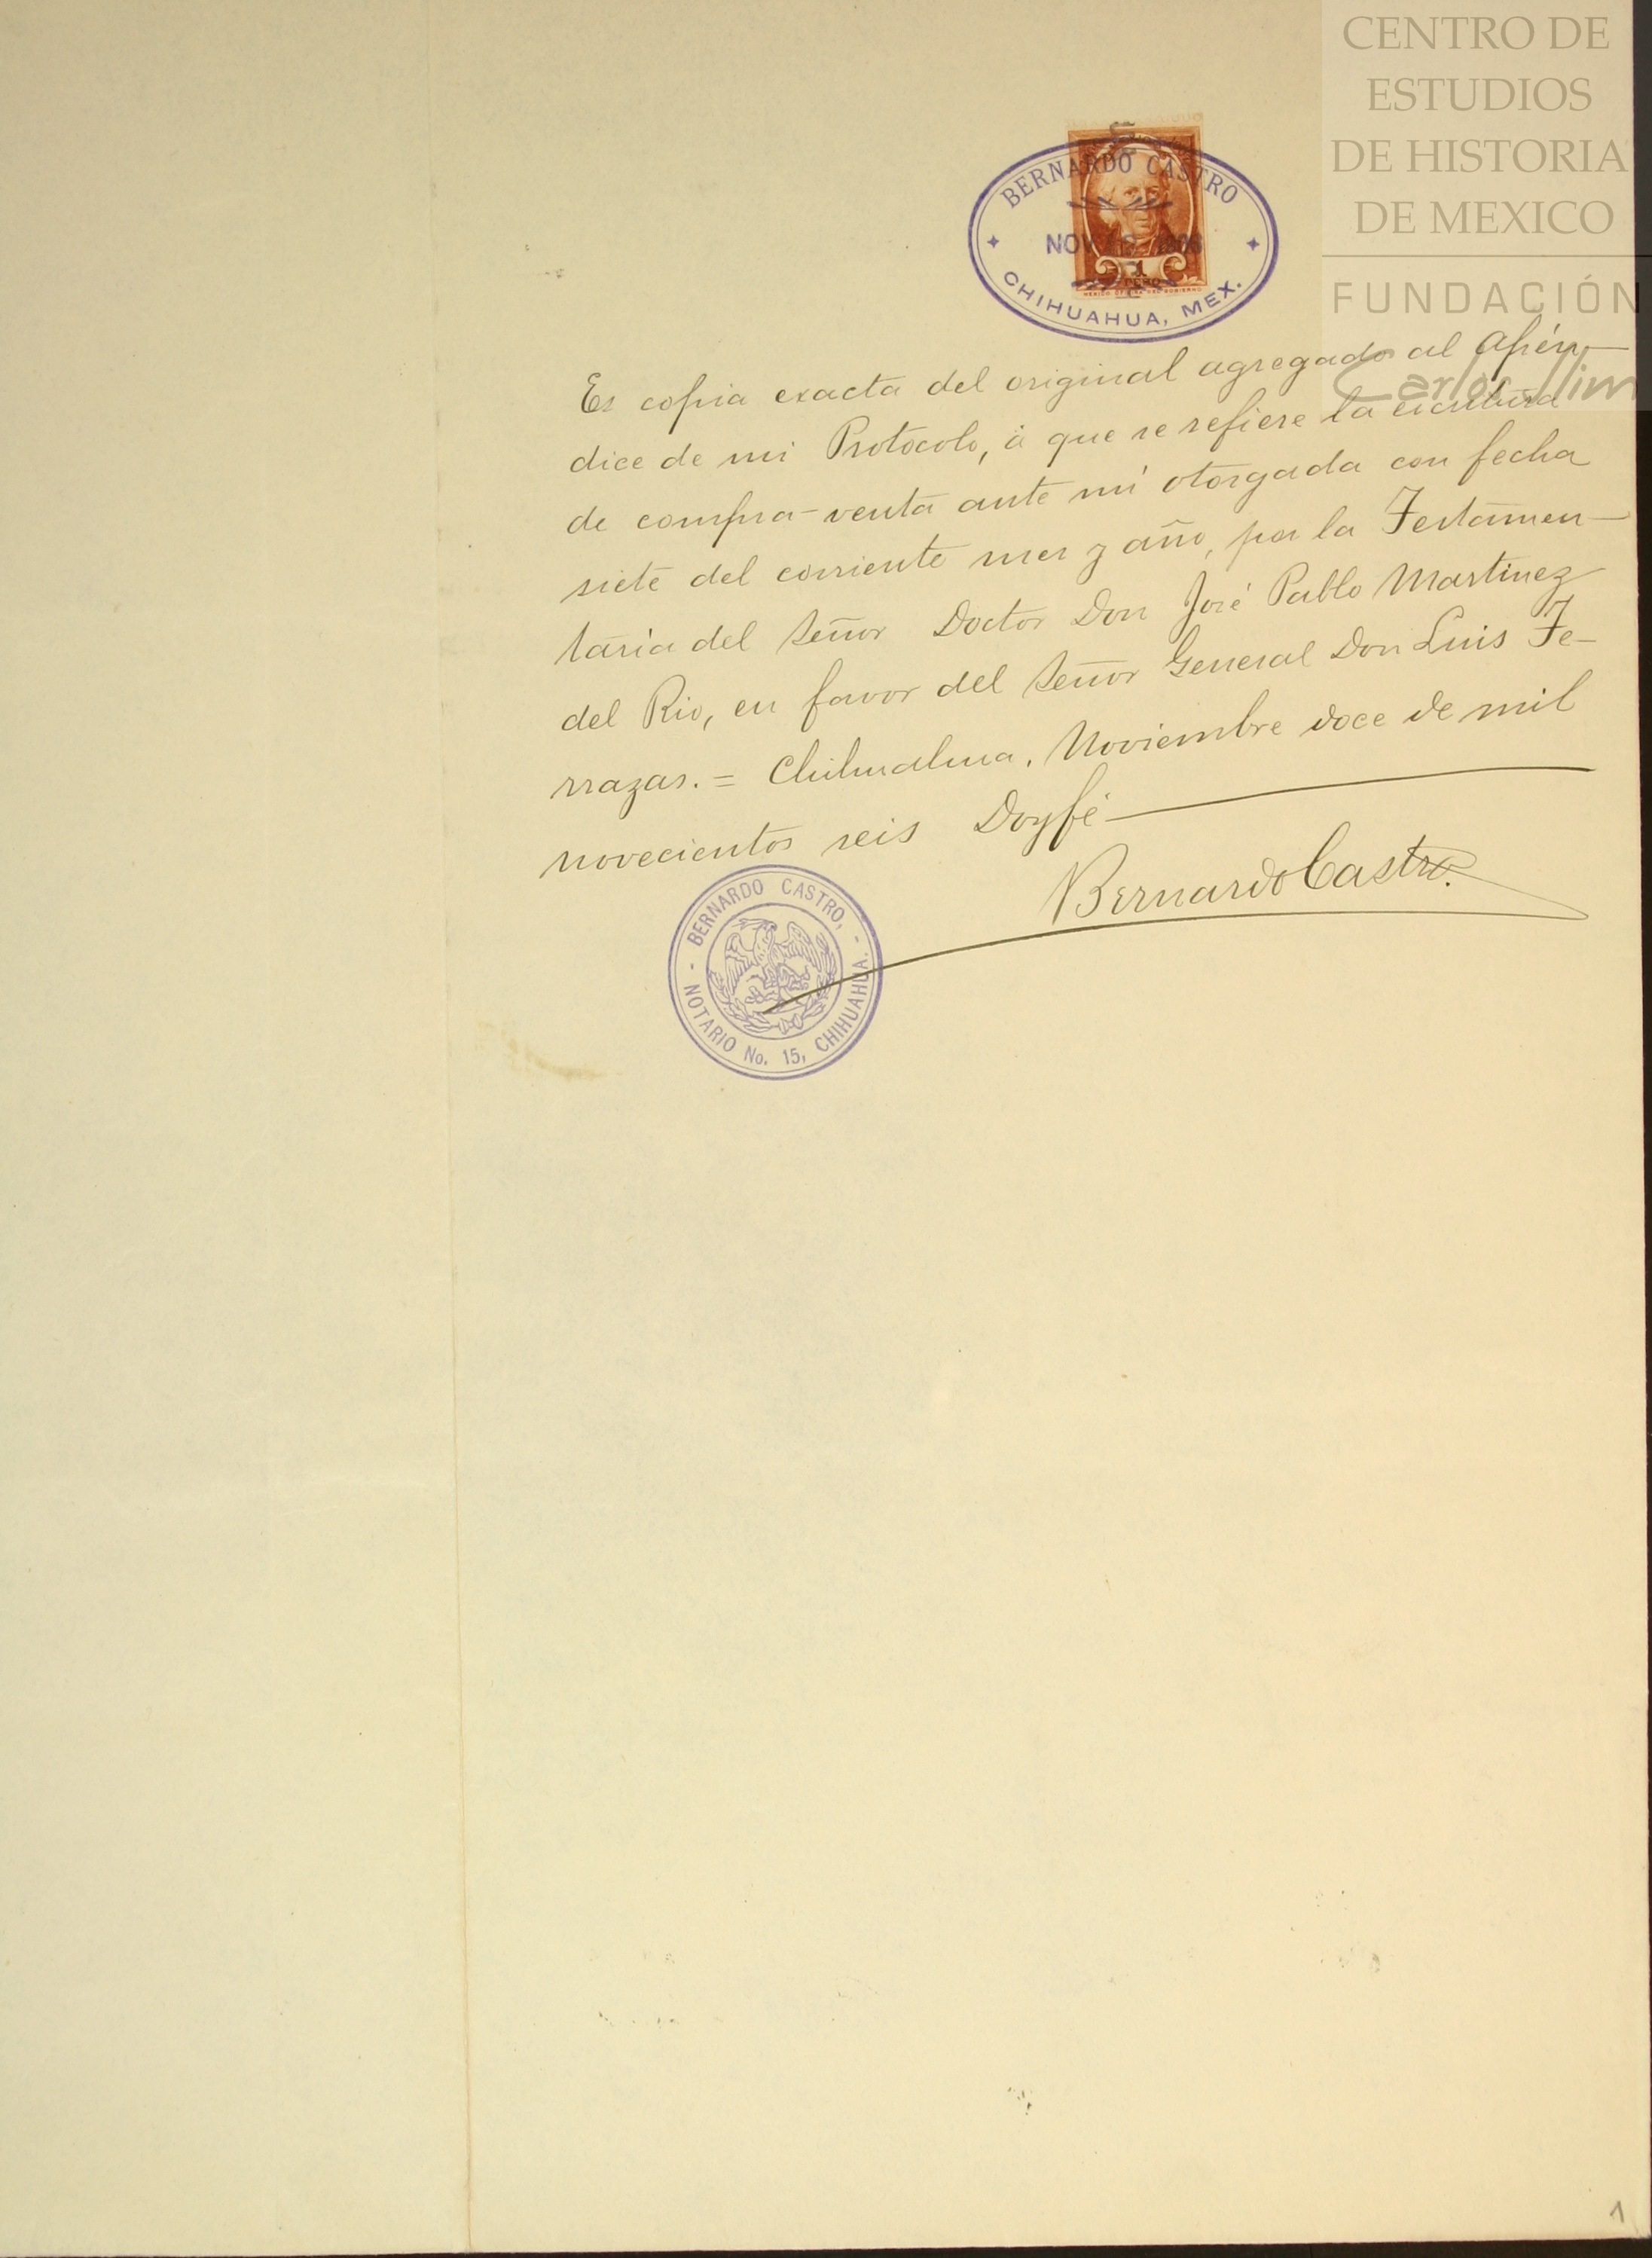 CENTRO DE
ESTUDIOS
DE HISTORIA
DE MEXICO
FUNDACIÓN
Carlos Slim
BERNARDO CASTRO
NOV 1906
1
PESO
CHIHUAHUA, MEX.
Es copia exacta del original agregado al Apén-
dice de mi Protocolo, á que se refiere la escritura
de compra-venta ante mí otorgada con fecha
siete del corriente mes y año, por la Testamen-
taria del Señor Doctor Don José Pablo Martinez
del Rio, en favor del Señor General Don Luis Te-
rrazas. = Chihuahua, Noviembre doce de mil
novecientos seis Doy fé
Bernardo Castro.
- BERNARDO CASTRO, -
NOTARIO No. 15, CHIHUAHUA.
1